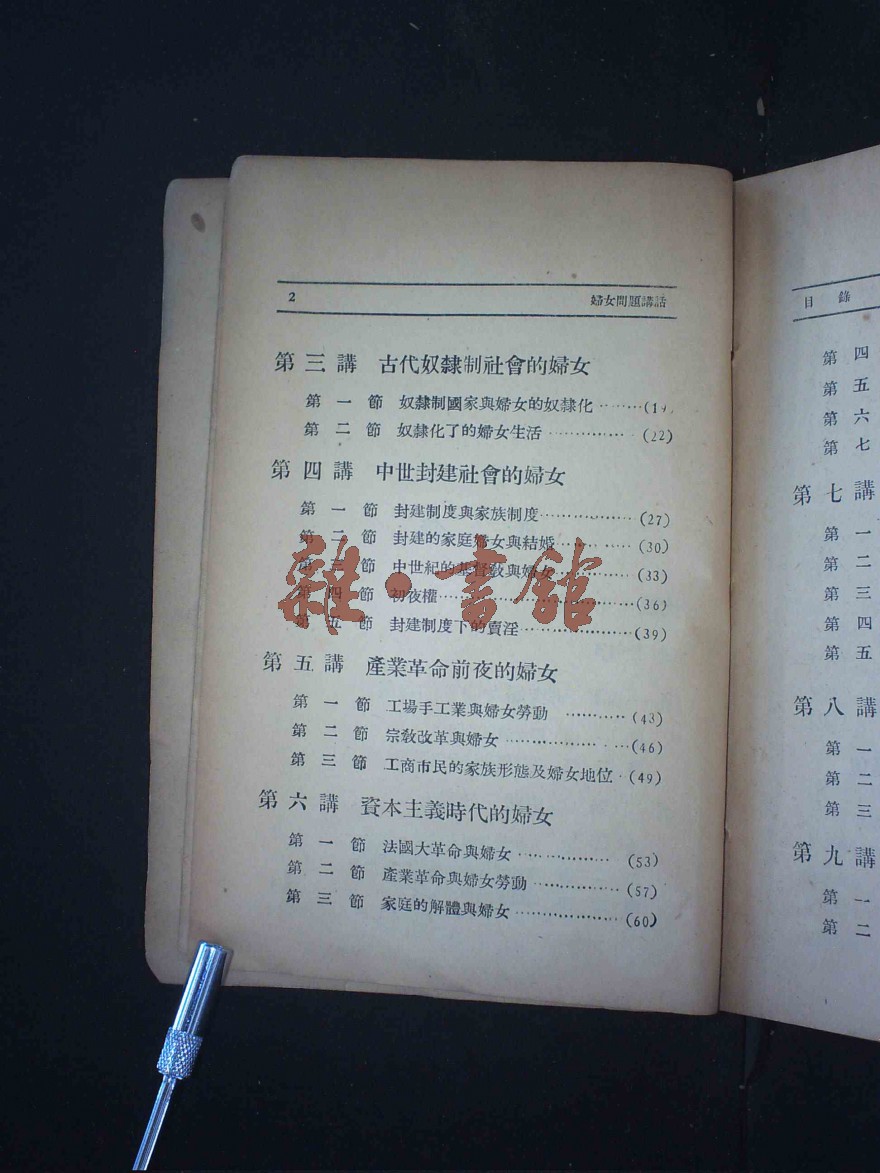 2 婦女問題講話
第三講 古代奴隸制社會的婦女
第一節 奴隸制國家與婦女的奴隸化………(19)
第二節 奴隸化了的婦女生活……………(22)
第四講 中世封建社會的婦女
第一節 封建制度與家族制度……………(27)
第二節 封建的家庭婦女與結婚…………(30)
第三節 中世紀的基督教與婦女…………(33)
第四節 初夜權……………………………(36)
第五節 封建制度下的賣淫………………(39)
第五講 產業革命前夜的婦女
第一節 工場手工業與婦女勞動…………(43)
第二節 宗教改革與婦女…………………(46)
第三節 工商市民的家族形態及婦女地位·(49)
第六講 資本主義時代的婦女
第一節 法國大革命與婦女………………(53)
第二節 產業革命與婦女勞動……………(57)
第三節 家庭的解體與婦女………………(60)
雜·書館
目錄
第四
第五
第六
第七
第七講
第一
第二
第三
第四
第五
第八講
第一
第二
第三
第九講
第一
第二